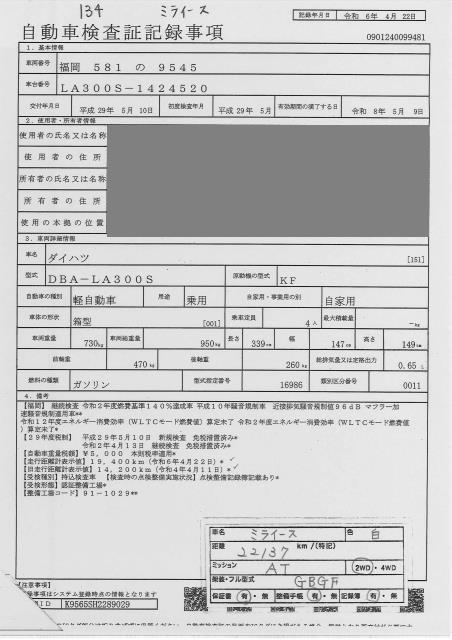 134 ミライース
記録年月日 令和 6年 4月 22日
自動車検査証記録事項
0901240099481
1．基本情報
車両番号 福岡 581 の 9545
車台番号 LA300S-1424520
交付年月日 平成 29年 5月 10日 初度検査年月 平成 29年 5月 有効期間の満了する日 令和 8年 5月 9日
2．使用者・所有者情報
使用者の氏名又は名称
使用者の住所
所有者の氏名又は名称
所有者の住所
使用の本拠の位置
3．車両詳細情報
車名 ダイハツ [151]
型式 DBA-LA300S 原動機の型式 KF
自動車の種別 軽自動車 用途 乗用 自家用・事業用の別 自家用
車体の形状 箱型 [001] 乗車定員 4人 最大積載量 -kg
車両重量 730kg 車両総重量 950kg 長さ 339cm 幅 147cm 高さ 149cm
前軸重 470kg 後軸重 260kg 総排気量又は定格出力 0.65 L
燃料の種類 ガソリン 型式指定番号 16986 類別区分番号 0011
4．備考
【福岡】 継続検査 令和2年度燃費基準140％達成車 平成10年騒音規制車 近接排気騒音規制値96dB マフラー加
速騒音規制適用車**
令和12年度エネルギー消費効率（WLTCモード燃費値）算定未了 令和2年度エネルギー消費効率（WLTCモード燃費
値）算定未了*
【29年度税制】 平成29年5月10日 新規検査 免税措置済み*
令和2年4月13日 継続検査 免税措置済み*
【自動車重量税額】¥5,000 本則税率適用*
【走行距離計表示値】19,400km（令和6年4月22日）*
【旧走行距離計表示値】14,200km（令和4年4月11日）*
【受検種別】持込検査車 【検査時の点検整備実施状況】点検整備記録簿記載あり*
【受検形態】認証整備工場*
【整備工場コード】91-1029**
車名 ミライース 色 白
距離 22137 km /（特記）
ミッション AT 2WD・4WD
架装・フル型式 GBGF
保証書 有・無 整備手帳 有・無 記録簿 有・無
【注意事項】
記録事項はシステム登録時点の情報となります
ID K9565SH2289029